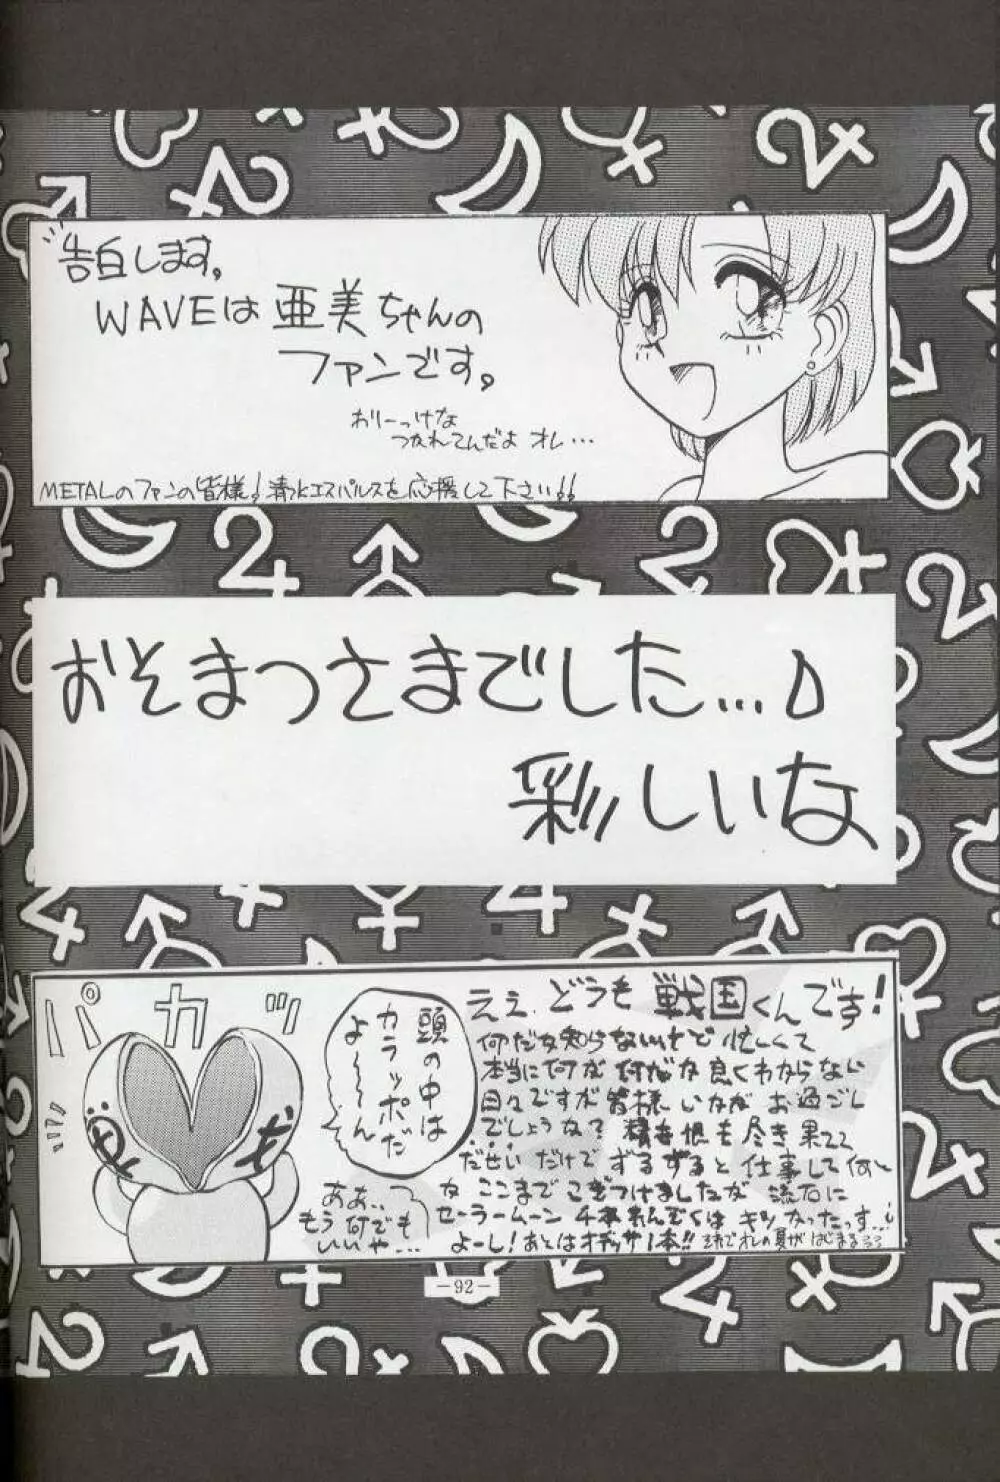 告白します。
WAVEは亜美ちゃんの
ファンです。
おりーっけな
つなれてんだよ オレ…
METALのファンの皆様！清水エスパルスを応援して下さい！！
おそまつさまでした…♪
彩しいな
パカッ
頭の中は
カラッポだ
よ〜〜〜ん
ああ…
もう何でも
いいや…
ええ、どうも 戦国くんです！
何だか知らないけど 忙しくて
本当に何が何だか良くわからない
日々ですが皆様いかがお過ごし
でしょうか？ 精も根も尽き果てて
だせいだけでずるずると仕事して何と
かここまでこぎつけましたが 流石に
セーラームーン4本れんぞくはキツかったっす…
よーし！あとはオヂッサ1本!! それでオレの夏がはじまる
－92－